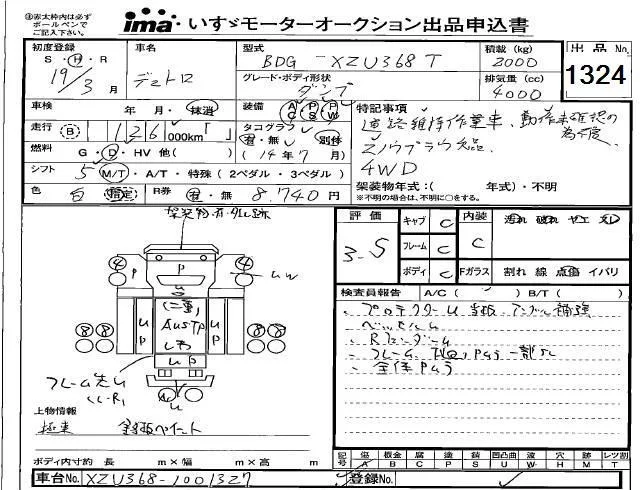 ③赤太枠内は必ず
ボールペンで
ご記入下さい。
ima いすゞモーターオークション出品申込書
初度登録
S・H・R
19/3 月
車名
デュトロ
型式
BDG - XZU368T
積載(kg)
2000
出品No.
1324
グレード・ボディ形状
ダンプ
排気量(cc)
4000
車検 年 月・抹消
装備 AC PS PW
特記事項
走行 B 126,000km「 」
タコグラフ
有・無 別体
(14年7月)
道路維持作業車、動作未確認の為不康
スノウプラウ欠品
4WD
燃料 G・D・HV 他( )
シフト 5 M/T・A/T・特殊(2ペダル・3ペダル)
架装物年式:( 年式)・不明
※不明の場合は、不明に○をする。
色 白 指定 R券 有・無 8,740円
架装物有・タル跡
評価
3-5
キャブ C
フレーム C
ボディ C
内装 C
Fガラス
汚れ 破れ ヤエ スレ
割れ 線 点傷 イバリ
検査員報告 A/C( ) B/T( )
プロテクターU 当板 アングル補強
全体Pムラ
④ P P ④ UW
⑧⑧ U P U P ⑧⑧
(二重)
AusTP
しわ
UP
フレーム先U
U
上物情報
極東
ボディ内寸約 長 m×幅 m×高 m
記号 傷 板金 腐 塗 錆 凹凸曲 波 穴 跡 レツ割
A B C P S U W H M T
車台No. XZU368-1001327
登録No.